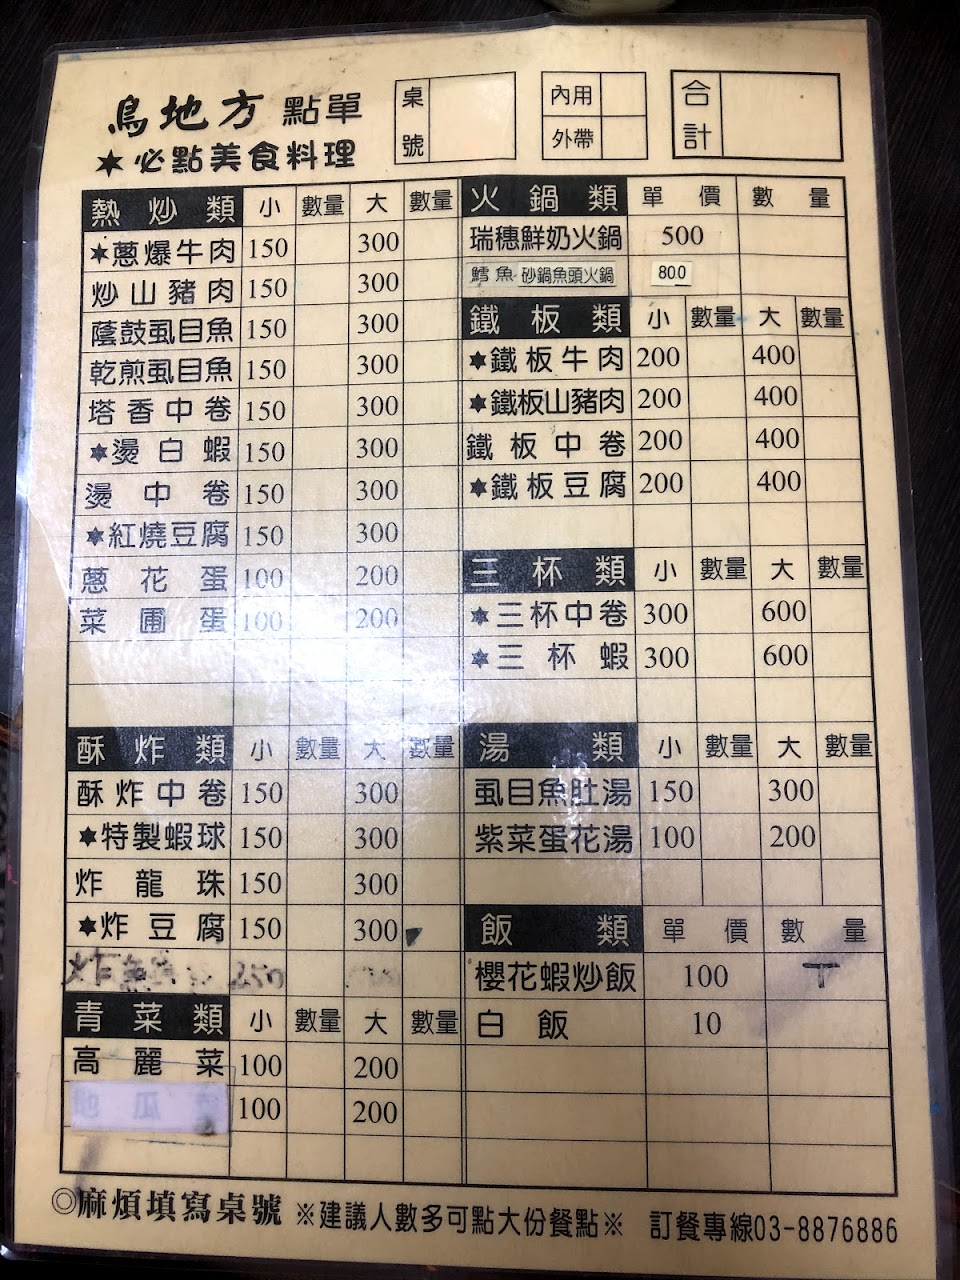 鳥地方 點單
★必點美食料理
桌號
內用
外帶
合計
熱炒類 小 數量 大 數量
★蔥爆牛肉 150 300
炒山豬肉 150 300
蔭鼓虱目魚 150 300
乾煎虱目魚 150 300
塔香中卷 150 300
★燙白蝦 150 300
燙中卷 150 300
★紅燒豆腐 150 300
蔥花蛋 100 200
菜圃蛋 100 200
酥炸類 小 數量 大 數量
酥炸中卷 150 300
★特製蝦球 150 300
炸龍珠 150 300
★炸豆腐 150 300
炸 250
青菜類 小 數量 大 數量
高麗菜 100 200
100 200
火鍋類 單價 數量
瑞穗鮮奶火鍋 500
鱈魚 砂鍋魚頭火鍋 800
鐵板類 小 數量 大 數量
★鐵板牛肉 200 400
★鐵板山豬肉 200 400
鐵板中卷 200 400
★鐵板豆腐 200 400
三杯類 小 數量 大 數量
★三杯中卷 300 600
★三杯蝦 300 600
湯類 小 數量 大 數量
虱目魚肚湯 150 300
紫菜蛋花湯 100 200
飯類 單價 數量
櫻花蝦炒飯 100
白飯 10
◎麻煩填寫桌號 ※建議人數多可點大份餐點※ 訂餐專線03-8876886